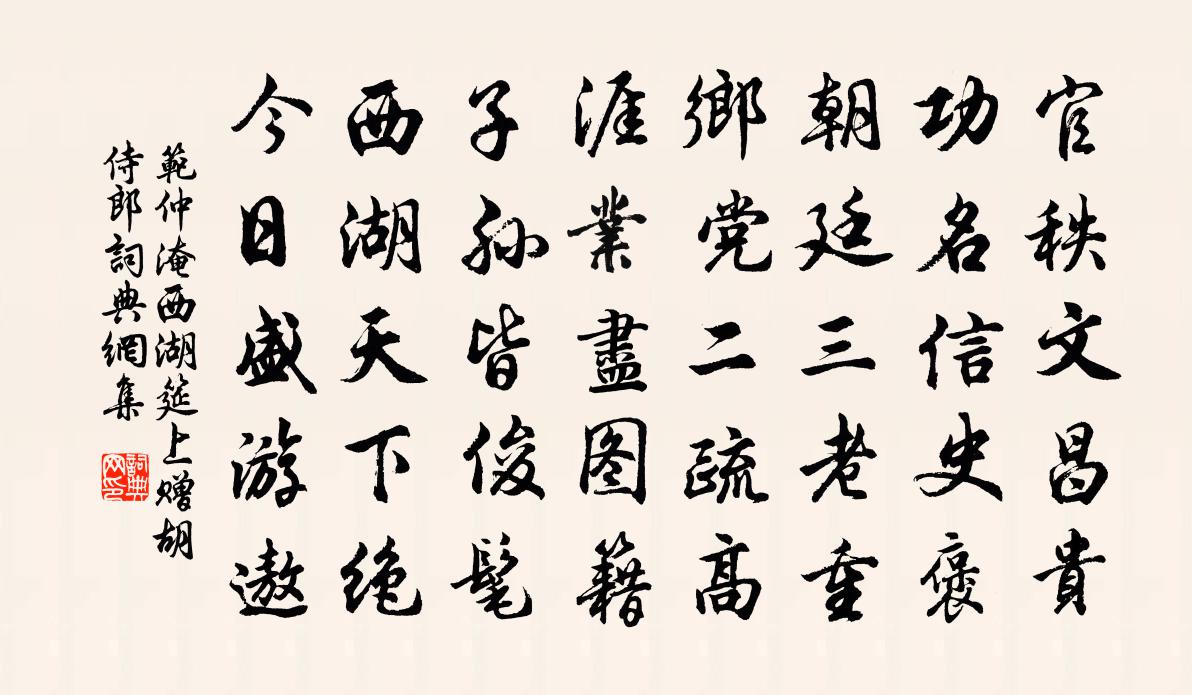 官秩文昌貴
功名信史褒
朝廷三老重
鄉党二疏高
涯業盡图籍
子孫皆俊髦
西湖天下絶
今日盛游遨
範仲淹西湖筵上赠胡
侍郎詞典網集
詞典
网印